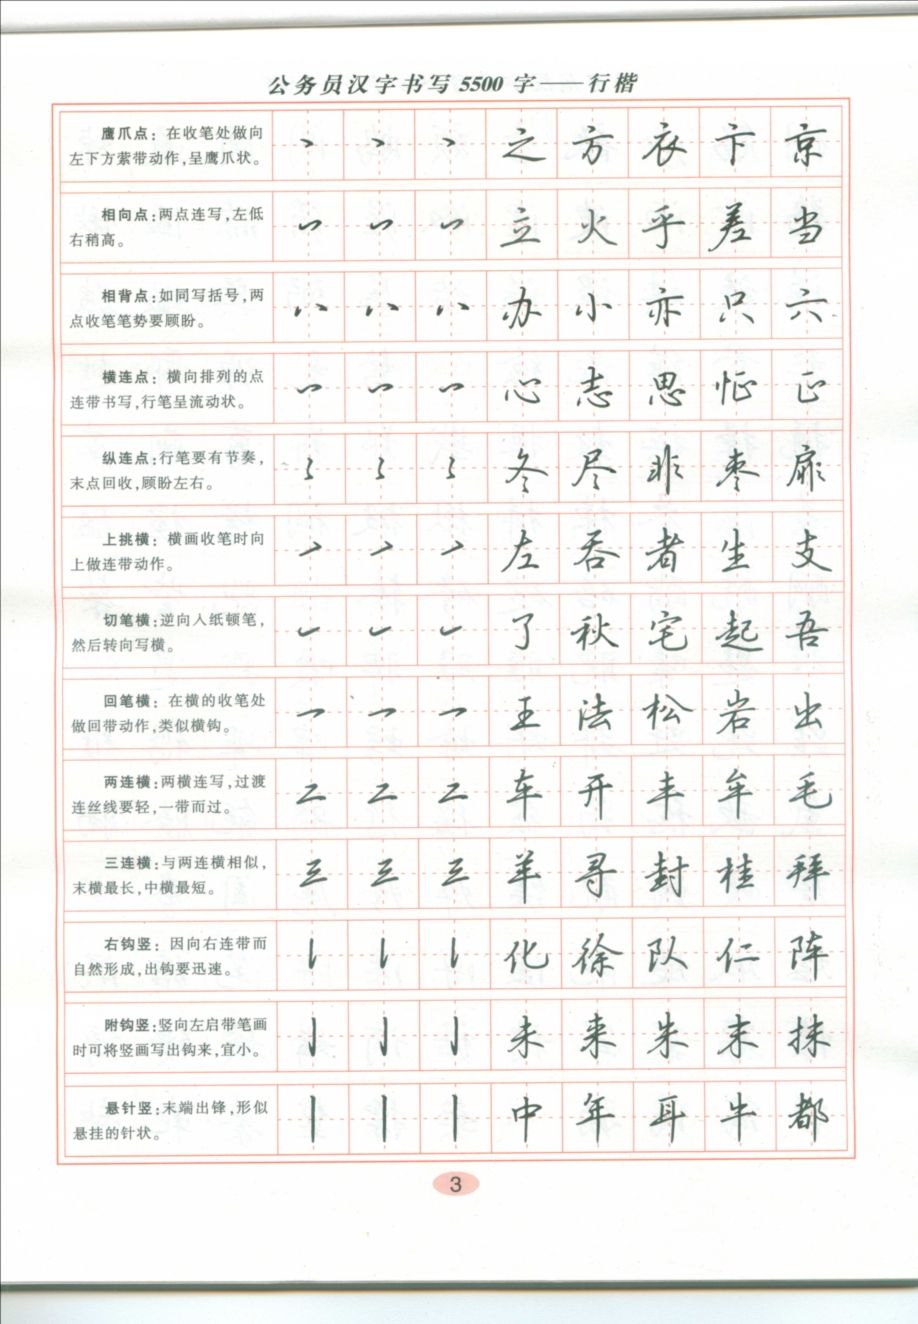 公务员汉字书写5500字——行楷
鹰爪点：在收笔处做向
左下方萦带动作，呈鹰爪状。
之 方 衣 卞 京
相向点：两点连写，左低
右稍高。
立 火 乎 差 当
相背点：如同写括号，两
点收笔笔势要顾盼。
办 小 亦 只 六
横连点：横向排列的点
连带书写，行笔呈流动状。
心 志 思 怔 正
纵连点：行笔要有节奏，
末点回收，顾盼左右。
冬 尽 非 枣 扉
上挑横：横画收笔时向
上做连带动作。
左 吞 者 生 支
切笔横：逆向入纸顿笔，
然后转向写横。
了 秋 宅 起 吾
回笔横：在横的收笔处
做回带动作，类似横钩。
王 法 松 岩 出
两连横：两横连写，过渡
连丝线要轻，一带而过。
车 开 丰 牟 毛
三连横：与两连横相似，
末横最长，中横最短。
羊 寻 封 桂 拜
右钩竖：因向右连带而
自然形成，出钩要迅速。
化 徐 队 仁 阵
附钩竖：竖向左启带笔画
时可将竖画写出钩来，宜小。
未 来 朱 末 抹
悬针竖：末端出锋，形似
悬挂的针状。
中 年 耳 牛 都
3